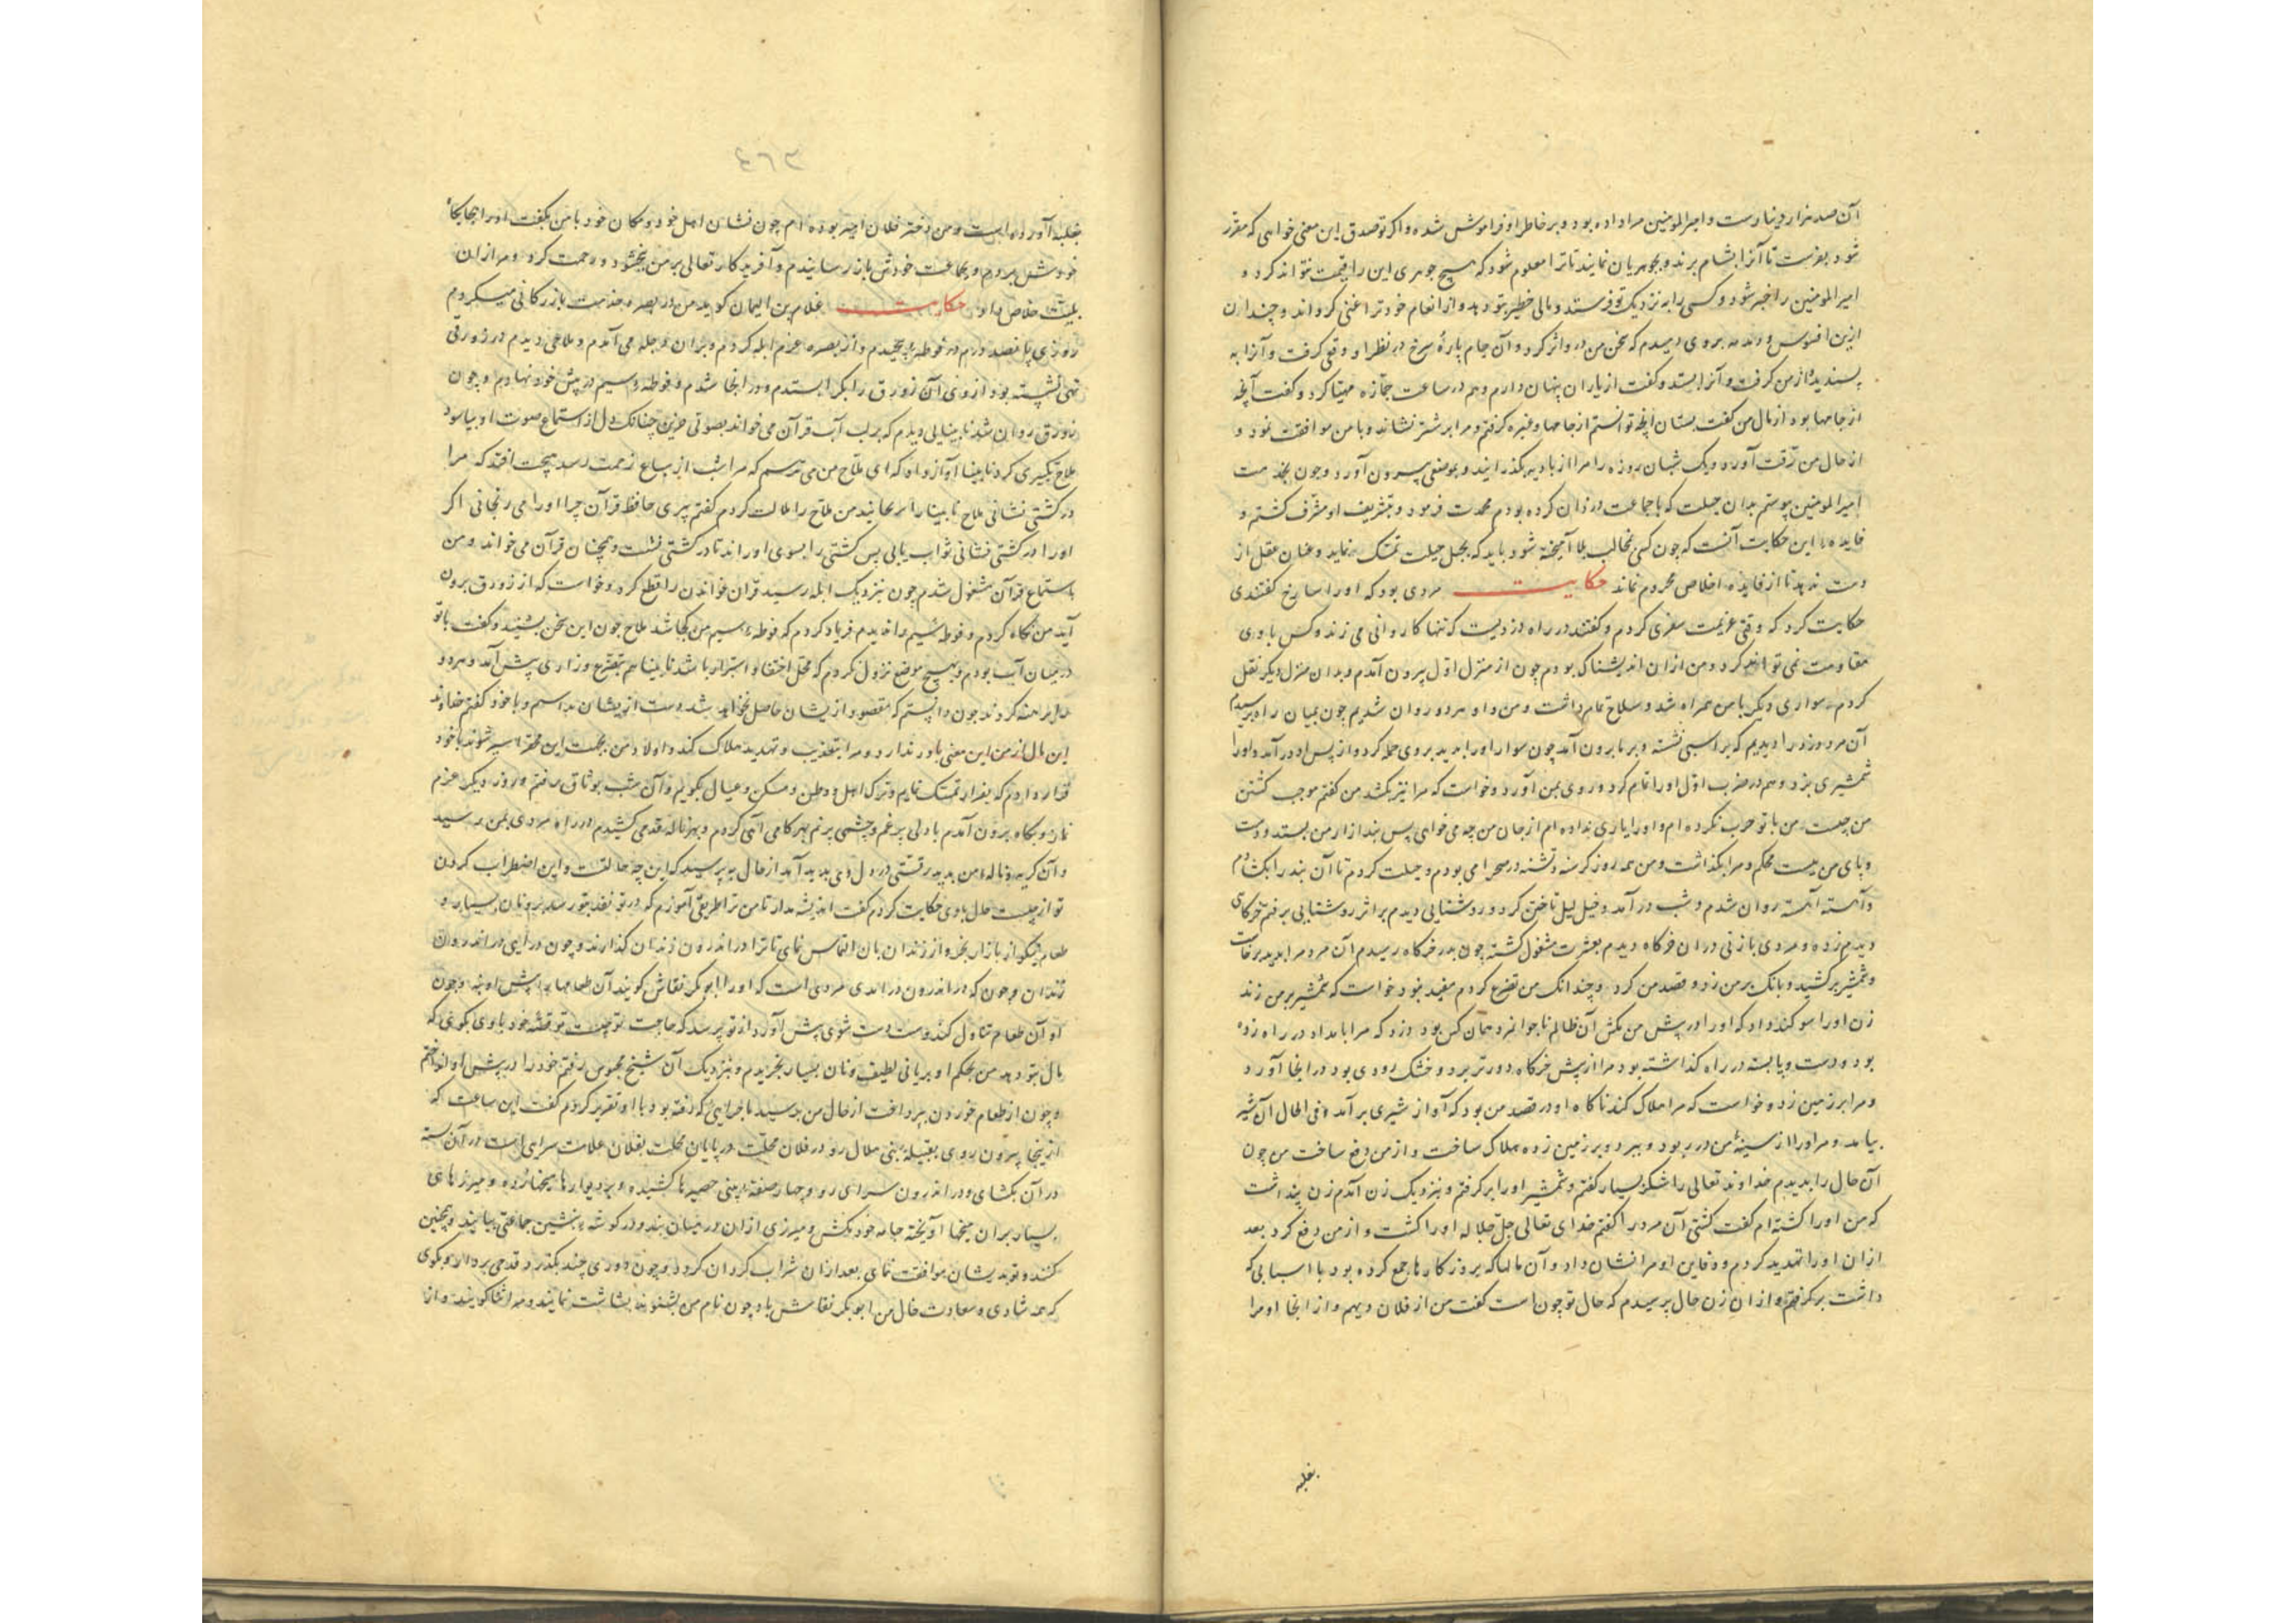 آن صد هزار دینارست و امیر المومنین مرا داده بود و بر خاطر او فراموش شده و اکر تو صدق این معنی خواهی که مقرر
شود بفرست تا آنرا بشام برند و بجوهریان نمایند تا ترا معلوم شود که هیچ جوهری این را قیمت نتواند کرد و
امیر المومنین را خبر شود و کسی را به نزدیک تو فرستد و مالی خطیر بتو دهد و از انعام خود ترا غنی کرداند و چندان
ازین افسوس و دمدمه بروی دمیدم که سخن من در و اثر کرد و آن جام پارهٔ سرخ در نظر او وقعی کرفت و آنرا به
پسندید از من کرفت و آنرا بستد و کفت از یاران پنهان دارم و هم در ساعت جمّازه مهیّا کرد و کفت آنچه
از جامها بود از مال من کفت بستان آنچه توانستم از جامها و غیره کرفتم و مرا بر شتر نشاند و با من موافقت نمود و
از حال من رقت آورد و یک شبان روزه را مرا از بادیه بکذرانید و بموضعی بیرون آورد و چون بخدمت
امیر المومنین پیوستم بدان حیلت که با جماعت دزدان کرده بودم محمدت فرمود و بتشریف او مشرف کشتم و
فایده این حکایت آنست که چون کسی بمخالب بلا آمیخته شود باید که بحبل حیلت تمسّک نماید و عنان عقل از
دست ندهد تا از فایده اخلاص محروم نماند حکایت مردی بود که او را سارخ کفتندی
حکایت کرد که وقتی عزیمت سفری کردم و کفتند در راه دزدیست که تنها کاروانی می زند و کس با وی
مقاومت نمی تواند کرد و من از ان اندیشناک بودم چون از منزل اوّل بیرون آمدم و بدان منزل دیکر نقل
کردم سواری دیکر با من همراه شد و سلاح تمام داشت و من و او هر دو روان شدیم چون بمیان راه برسیدیم
آن مرد دزد را دیدیم که بر اسبی نشسته و بر ما برون آمد چون سوار او را بدید بروی حمله کرد و از پس او در آمد و او را
شمشیری بزد و هم در ضرب اوّل او را تمام کرد و روی بمن آورد و خواست که مرا نیز بکشد من کفتم موجب کشتن
من چیست من با تو حرب نکرده ام و او را یاری نداده ام از جان من چه می خواهی پس بند ازار من بستد و دست
و پای من ببست محکم و مرا بکذاشت و من همه روز کرسنه و تشنه در صحرا می بودم و حیلت کردم تا آن بند را بکشادم
و آهسته آهسته روان شدم و شب در آمد و خیل لیل تاختن کرد و روشنایی دیدم بر اثر روشنایی برفتم خرکاهی
دیدم زده و مردی با زنی در ان خرکاه دیدم بعشرت مشغول کشته چون بدر خرکاه رسیدم آن مرد مرا بدید برخاست
و شمشیر برکشید و بانک بر من زد و قصد من کرد و چندانک من تضرع کردم مفید نبود خواست که شمشیر بر من زند
زن او را سوکند داد که او را در پیش من مکش آن ظالم ناجوانمرد همان کس بود دزد که مرا بامداد در راه زده
بود و دست و پا بسته در راه کذاشته بود مرا از پیش خرکاه دورتر برد و خشک رودی بود در انجا آورد
و مرا بر زمین زد و خواست که مرا هلاک کند ناکاه او در قصد من بود که آواز شیری بر آمد و فی الحال آن شیر
بیامد و مر او را از سینهٔ من در ربود و ببرد و بر زمین زده هلاک ساخت و از من دفع ساخت من چون
آن حال را بدیدم خداوند تعالی را شکر بسیار کفتم و شمشیر او را بر کرفتم و بنزدیک زن آمدم زن پنداشت
که من او را کشته ام کفت کشتی آن مرد را کفتم خدای تعالی جلّ جلاله او را کشت و از من دفع کرد بعد
از ان او را تهدید کردم و دفاین او مرا نشان داد و آن مالها که بروزکارها جمع کرده بود با اسبابی که
داشت بر کرفتم و از ان زن حال پرسیدم که حال تو چون است کفت من از فلان دیهم و از انجا او مرا
بغلبه
٤٦٣
بغلبه آورده است و من دختر فلان امیر بوده ام چون نشان اهل خود و مکان خود با من بکفت او را بجایکاه
خودش بردم و بجماعت خودش باز رسانیدم و آفریدکار تعالی بر من ببخشود و رحمت کرد و مرا از ان
بلیّت خلاص داد حکایت غلام بن الیمان کوید من در بصره خدمت بازرکانی میکردم
روزی پانصد درم در فوطه پیچیدم و از بصره عزم ابله کردم و بر ان دجله می آمدم و ملاحی دیدم در زورقی
تهی نشسته بود از وی آن زورق را بکرا بستدم و در انجا شدم و فوطه سیم در پیش خود نهادم و چون
زورق روان شد نابینایی دیدم که بر لب آب قرآن می خواند بصوتی حزین چنانکه دل از استماع صوت او بیاسود
ملاح تکبیری کرد نابینا آواز داد که ای ملّاح من می ترسم که مرا شب از سباع زحمت رسد هیچت افتد که مرا
در کشتی نشانی ملاح نابینا را برنجانید من ملاح را ملامت کردم کفتم پیری حافظ قرآن چرا او را می رنجانی اکر
او را در کشتی نشانی ثواب یابی پس کشتی را بسوی او راند تا در کشتی نشست و همچنان قرآن می خواند و من
باستماع قرآن مشغول شدم چون بنزدیک ابله رسید قرآن خواندن را قطع کرد و خواست که از زورق برون
آید من نکاه کردم و فوطه سیم را ندیدم فریاد کردم که فوطه سیم من کجا شد ملاح چون این سخن بشنید و کفت با تو
در میان آب بودم و بهیچ موضع نزول نکردم که محل اختفا و استراز باشد نابینا هم بتضرع و زاری پیش آمد و هر دو
مرا برهنه کردند چون دانستم که مقصود از یشان حاصل نخواهد شد دست از یشان بداشتم و با خود کفتم خداوند
این مال از من این معنی باور ندارد و مرا بتعذیب و تهدید هلاک کند و اولاد من بجهت این محقر اسیر شوند با خود
قرار دادم که بفرار تمسّک نمایم و ترک اهل و وطن و مسکن و عیال بکویم و آن شب بوثاق رفتم و روز دیکر عزم
نمازی پکاه برون آمدم با دلی پر غم و چشمی پر نم بهر کامی آهی کردم و بهر ناله قدمی کشیدم در راه مردی بمن رسید
و آن کریه و ناله من بدید رقتی در دل وی بدید آمد از حال بپرسید که این چه حالتست و این اضطراب کردن
تو از چیست حال با وی حکایت کردم کفت اندیشه مدار تا من ترا طریقی آموزم که در تو نقد بتو رسد برو نان بسیار و
طعام نیکو از بازار بخر و از زندان بان التماس نمای تا ترا در اندرون زندان کذارند و چون در آیی در اندرون
زندان و چون که در اندرون در آیدی مردی است که او را ابو بکر نقاش کویند آن طعامها پیش او نه و چون
او آن طعام تناول کند و دست شوی پیش آورد از تو پرسد که حاجت تو چیست تو قصّه خود با وی بکوی که
مال بتو دهد من بحکم او بریانی لطیف و نان بسیار بخریدم و بنزدیک آن شیخ محبوس رفتم خود را در پیش او انداختم
و چون از طعام خوردن بپرداخت از حال من پرسید ماجرایی که رفته بود با او تقریر کردم کفت این ساعت که
از ینجا بیرون روی بقبیلهٔ بنی هلال رو در فلان محلت در پایان محلت بفلان علامت سرایی است در آن بسته
در آن بکشای و در اندرون سرای رو و چهار صفه بینی حصیرها کشیده و بر دیوارها میخها زده و میزرهای
بسیار بر ان میخها آویخته جامه خود بکش و میزری از ان در میان بند و در کوشه بنشین جماعتی بیایند و همچنین
کنند و تو بدیشان موافقت نمای بعد از ان شراب کردان کردد و چون دوری چند بکذرد قدحی بردار و بکوی
که همه شادی و سعادت خال من ابو بکر نقاش باد چون نام من بشنوند بشاشت نمایند و مرا ثنا کویند و از